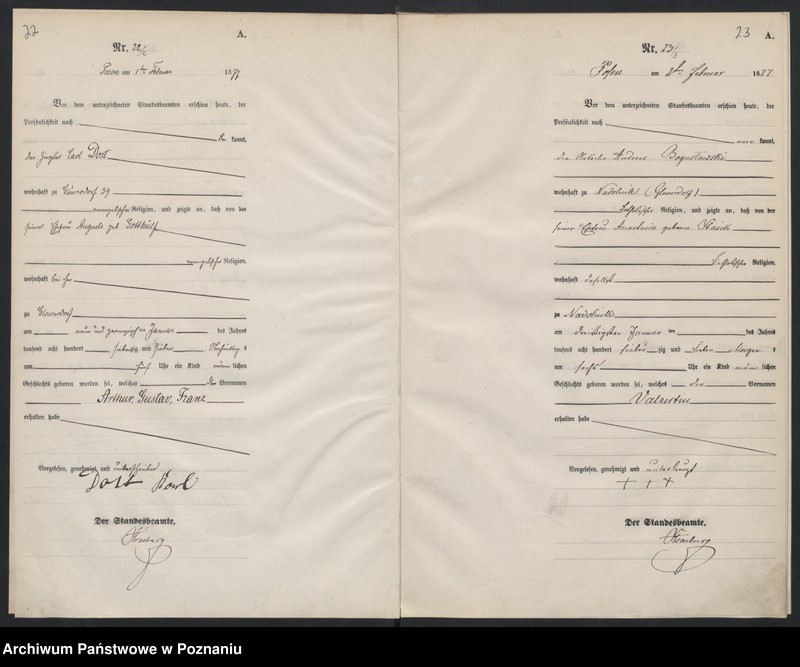 22
A.
Nr. 22
Posen am 1ten Februar 1877
Vor dem unterzeichneten Standesbeamten erschien heute, der
Persönlichkeit nach
be kannt,
der Ziegler Carl Dost
wohnhaft zu Glowerdorf 29
evangelischer Religion, und zeigte an, daß von der
seiner Ehefrau Auguste geb. Gotthilf
evangelischer Religion,
wohnhaft bei ihm
zu Glownodorf
am neun und zwanzigsten Januar des Jahres
tausend acht hundert siebenzig und sieben Nachmittag s
um fünf Uhr ein Kind männ lichen
Geschlechts geboren worden sei, welches die Vornamen
Arthur, Gustav, Franz
erhalten habe
Vorgelesen, genehmigt und unterschrieben
Dost Karl
Der Standesbeamte.
23
A.
Nr. 23
Posen am 2ten Februar 1877
Vor dem unterzeichneten Standesbeamten erschien heute, der
Persönlichkeit nach
kannt,
der Arbeiter Andreas Boguslawski
wohnhaft zu Nadolnik
katholischer Religion, und zeigte an, daß von der
seiner Ehefrau Anastasia geborene
katholischer Religion,
wohnhaft daselbst
zu Nadolnik
am dreißigsten Januar des Jahres
tausend acht hundert sieben zig und sieben Morgen s
um sechs Uhr ein Kind männ lichen
Geschlechts geboren worden sei, welches den Vornamen
Valentin
erhalten habe
Vorgelesen, genehmigt und unterkreuzt
+ + +
Der Standesbeamte.
Archiwum Państwowe w Poznaniu